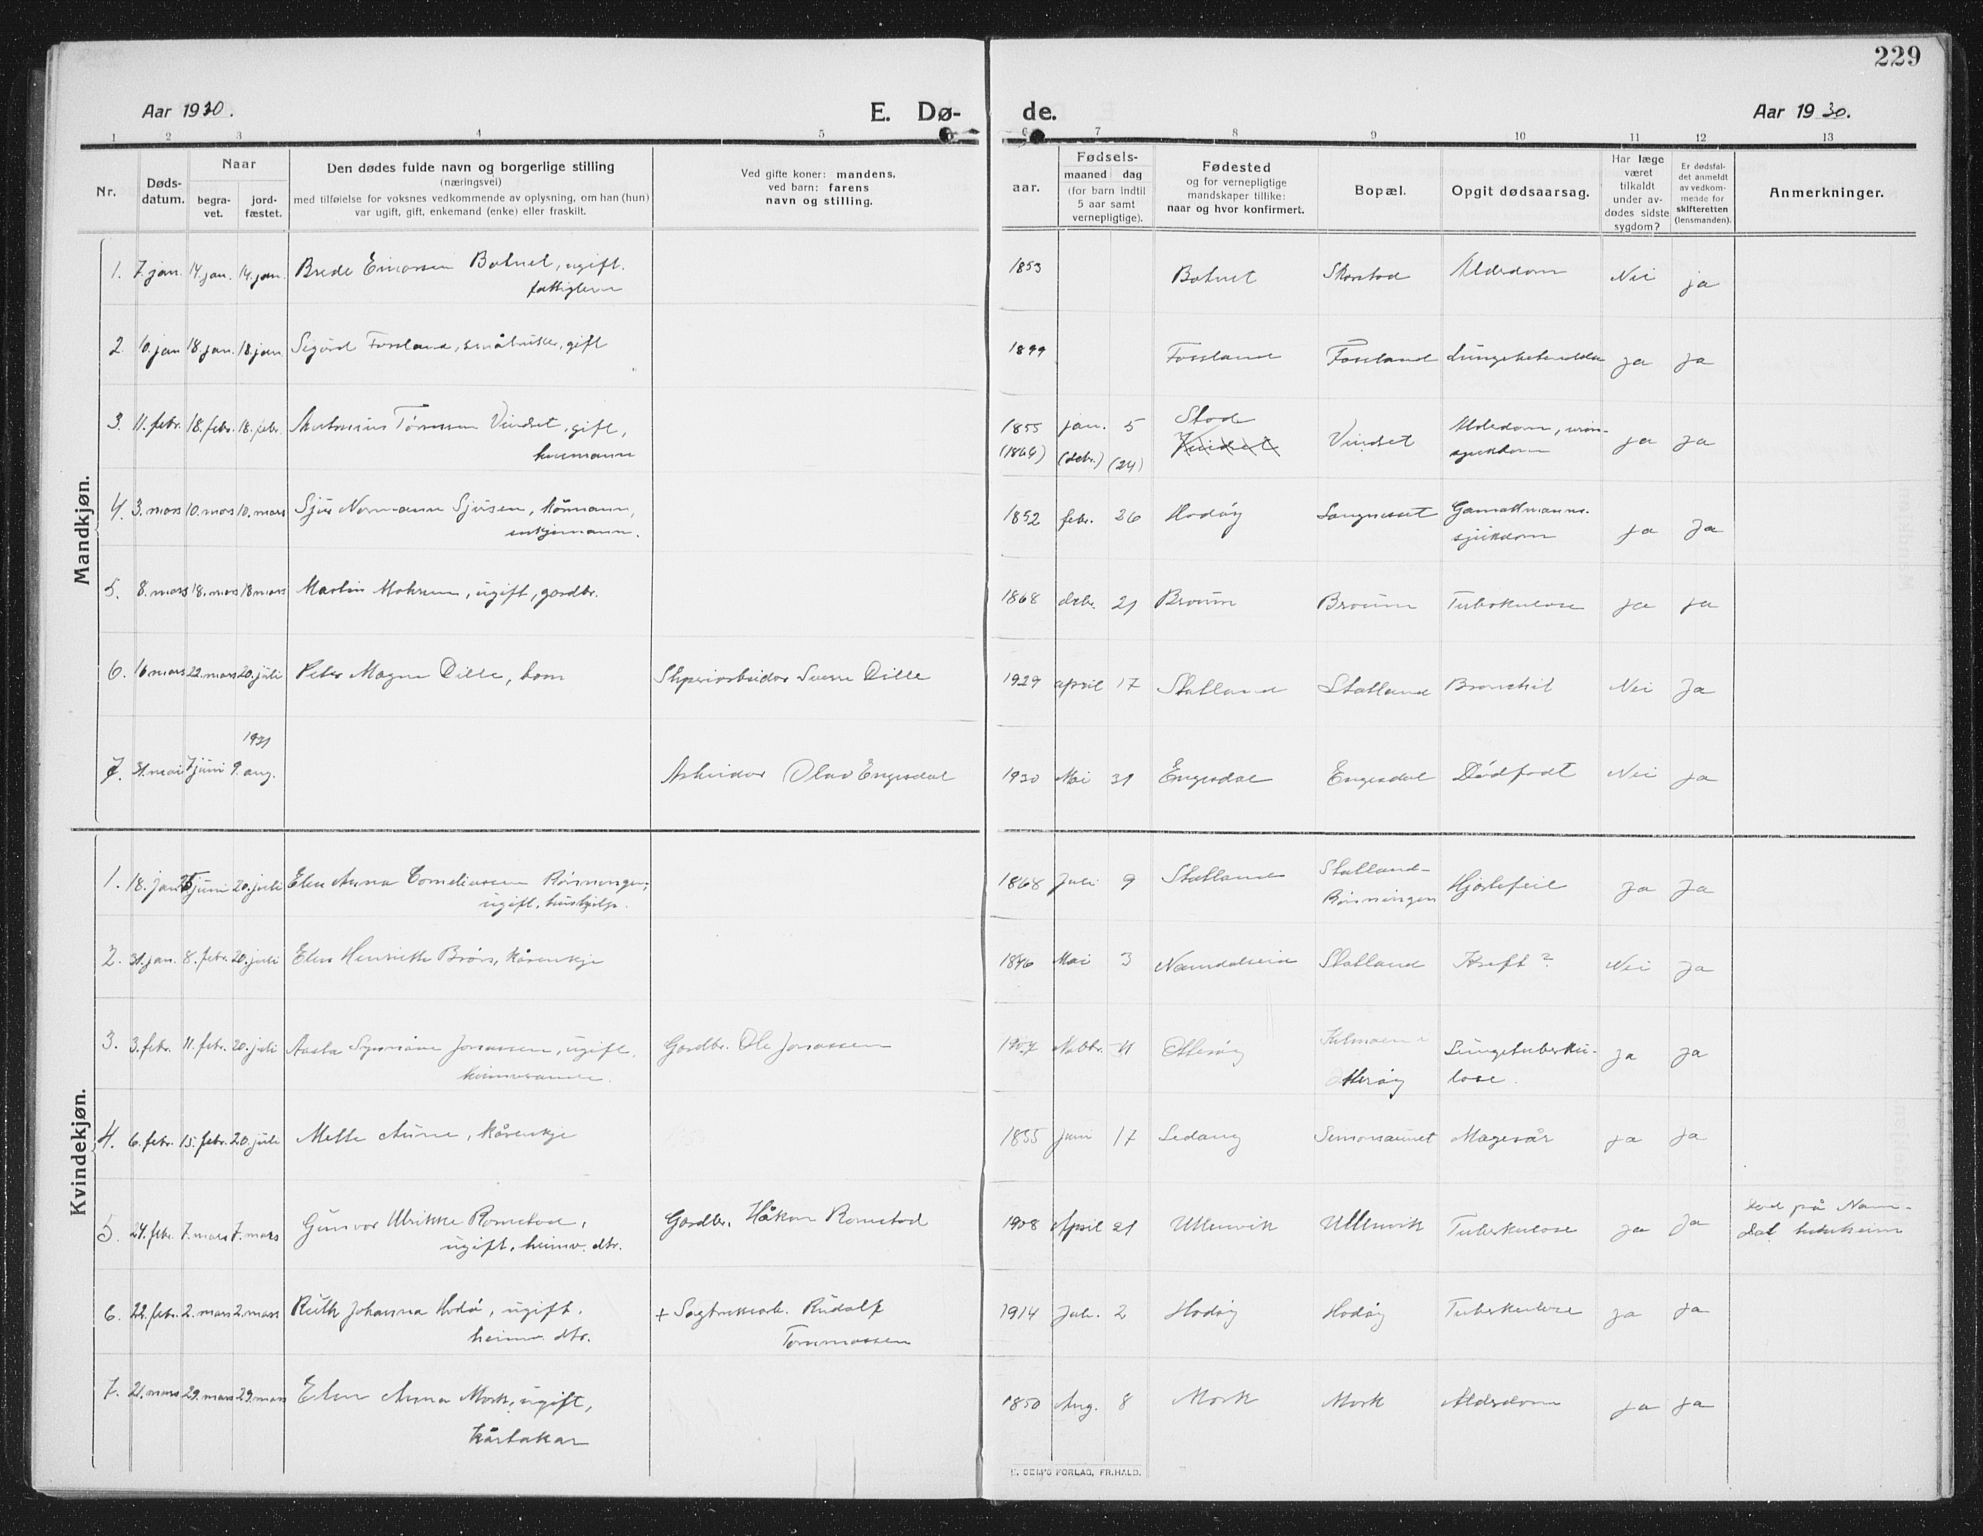 229
Aar 1930. E. Dø- de. Aar 1930.
1 2 3 4 5 6 7 8 9 10 11 12 13
Nr.
Døds-
datum.
Naar
begra-
vet.
jord-
fæstet.
Den dødes fulde navn og borgerlige stilling
(næringsvei)
med tilføielse for voksnes vedkommende av oplysning, om han (hun)
var ugift, gift, enkemand (enke) eller fraskilt.
Ved gifte koner: mandens,
ved barn: farens
navn og stilling.
aar.
Fødsels-
maaned dag
(for barn indtil
5 aar samt
vernepligtige).
Fødested
og for vernepligtige
mandskaper tillike:
naar og hvor konfirmert.
Bopæl.
Opgit dødsaarsag.
Har læge
været
tilkaldt
under av-
dødes sidste
sygdom?
Er dødsfal-
det anmeldt
av vedkom-
mende for
skifteretten
(lensmanden).
Anmerkninger.
Mandkjøn.
1. 7. jan. 14. jan. 14. jan. Brede Botnet, ugift. 1853 Botnet Alderdom Nei ja
2. 10. jan 18. jan. 18. jan Sigurd Fossland, småbruker, gift 1899 Fossland Fossland ja ja
3. 11. febr. 18. febr. 18. febr. Vindset, gift, 1855 jan. 5 Stod Vindset Alderdom, ja ja
husmann (1864) (debr.) (24) Vindset
4. 3. mars 10. mars 10. mars Sjur Normann Sjursen, kårmann, 1852 febr. 26 Hodøy Gamallmanns- ja ja
enkjemann. sjukdom
5. 8. mars 18. mars 18 mars Martin, ugift, gardbr. 1868 debr. 21 Tuberkulose ja ja
6. 16 mars 22. mars 20. juli Peter Magne Dille, barn Sverre Dille 1929 april 17 Statland Statland Bronchit Nei Ja
1931
7. 31. mai 7 juni 9. aug. Arbeider Olav Engesdal 1930 Mai 31 Engesdal Engesdal Dødfødt Nei ja
Kvindekjøn.
1. 18. jan. juni 20. juli Elen Anna Corneliussen Rørmingen, 1868 Juli 9 Statland Statland- Hjertefeil ja ja
ugift, hushjelp. Rørmingen
2. 31. jan. 8. febr. 20. juli Elen Henrikke Brørs, kårenkje 1846 Mai 3 Namdalseid Statland Kreft? Nei Ja
3. 3. febr. 11. febr. 20. juli Aasta Jonassen, ugift. Gardbr. Ole Jonassen 1907 Novbr. 11 Otterøy Lungetuberku- ja ja
heimeverande. Otterøy lose.
4. 6. febr. 15. febr. 20. juli Mette Aune, kårenkje 1855 juni 17 Simonsaunet Magesår ja ja
5. 24. febr. 7. mars 7. mars Gunvor Ulrikke Romstad, Gardbr. Håkon Romstad 1908 April 21 Utlenvik Utlenvik Tuberkulose ja ja død på Nam-
ugift, heimv. dtr. dal
6. 22. febr. 2. mars 2. mars Ruth Johanna Hodø, ugift. + Sagbruksarb. Rudolf 1914 2 Hodøy Hodøy Tuberkulose ja ja
heimv. dtr. Tommassen
7. 21. mars 29. mars 29. mars Elen Anna Mork, ugift, 1850 Aug. 8 Mork Mork Alderdom ja ja
kårtakar
FORLAG, FR.HALD.